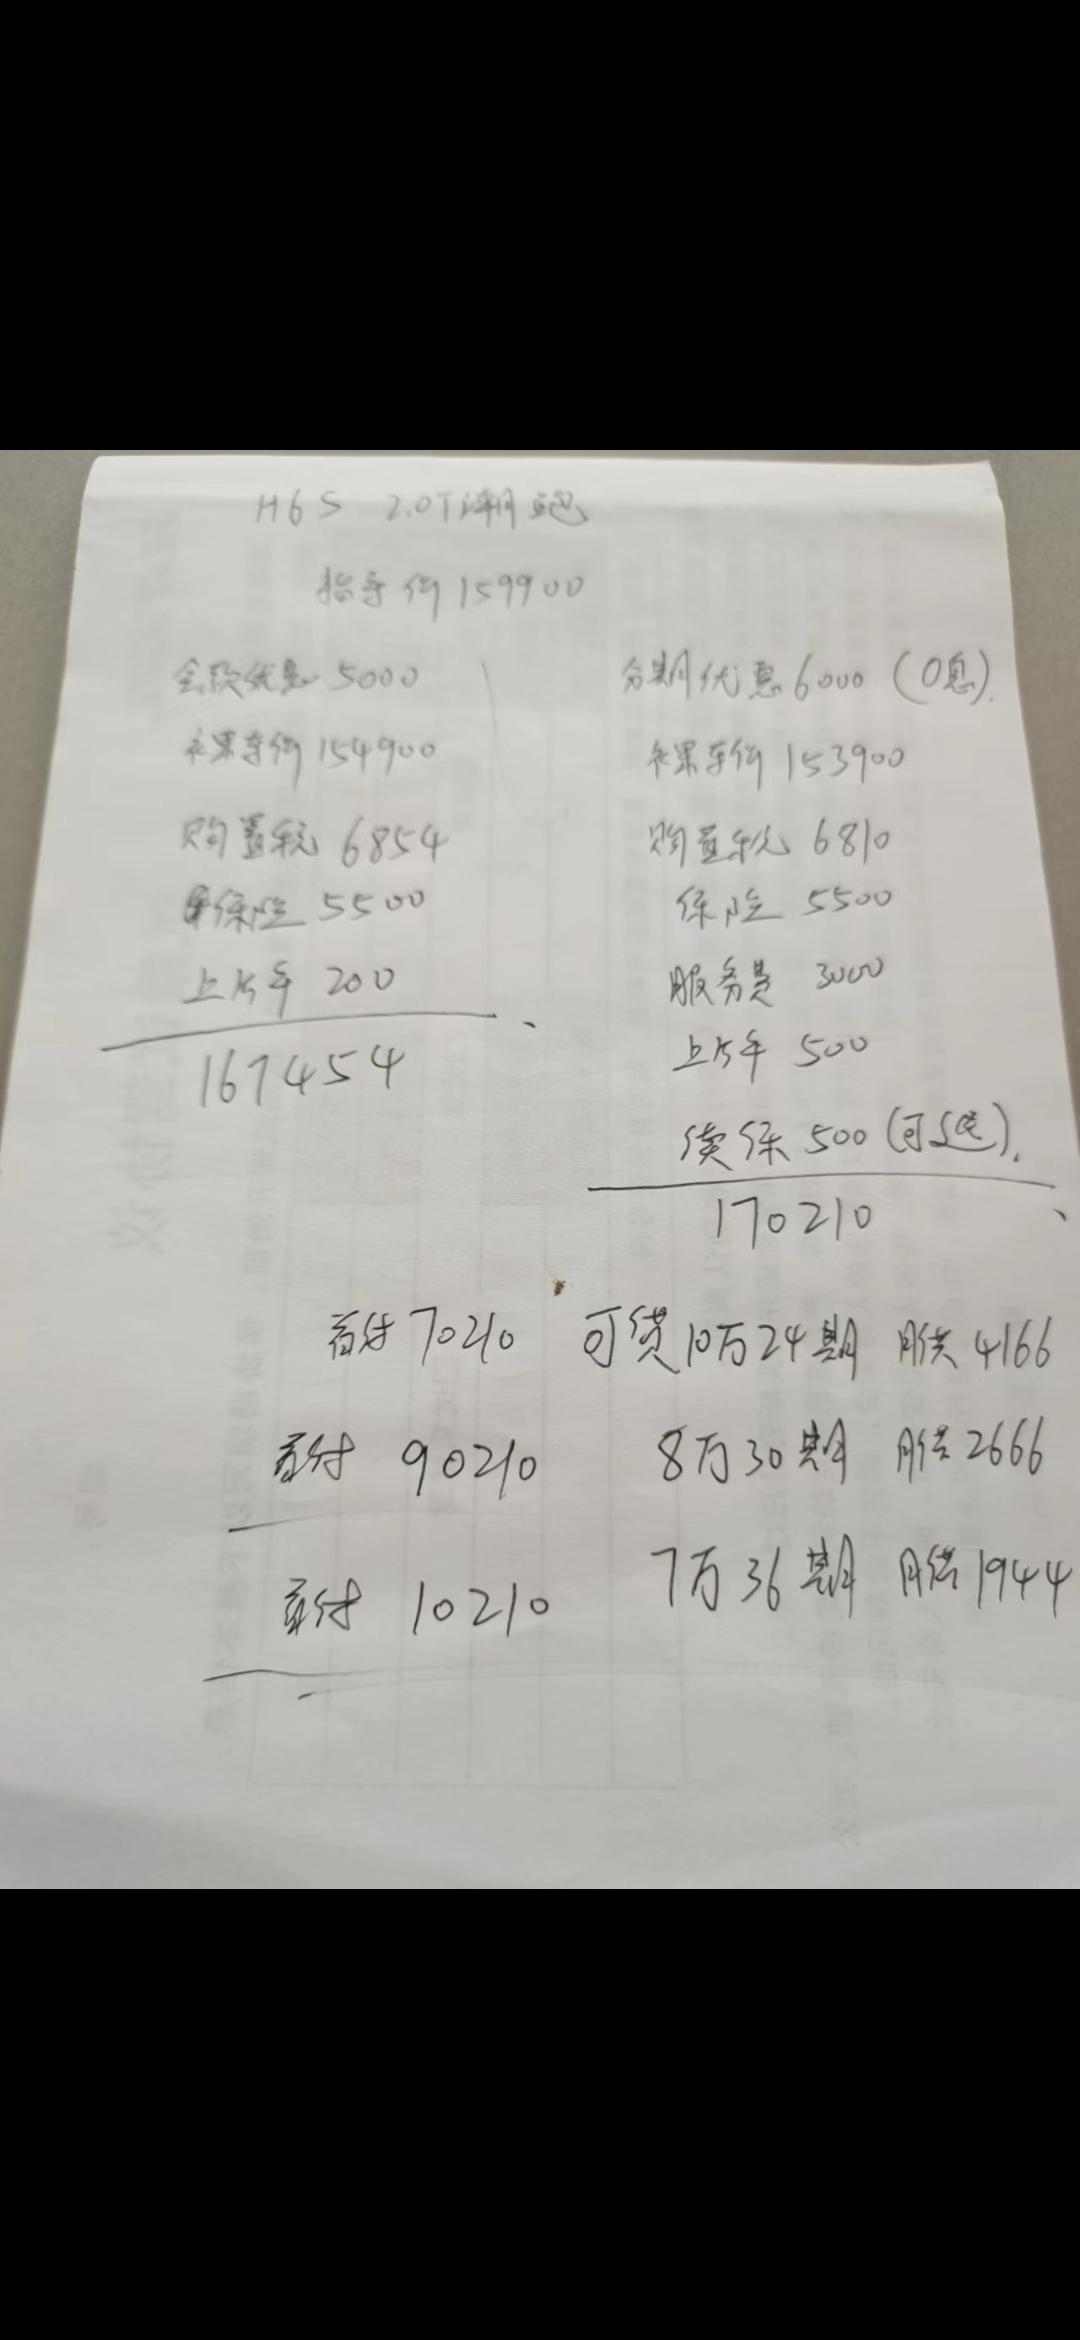 H6S 2.0T潮跑
指导价159900
全款优惠 5000
裸车价154900
购置税 6854
保险 5500
上户车 200
167454
分期优惠6000(0息).
裸车价153900
购置税 6810
保险 5500
服务费 3000
上户车 500
续保500(可退).
170210
首付70210 可贷10万24期 月供4166
首付 90210 8万30期 月供2666
首付 10210 7万36期 月供1944